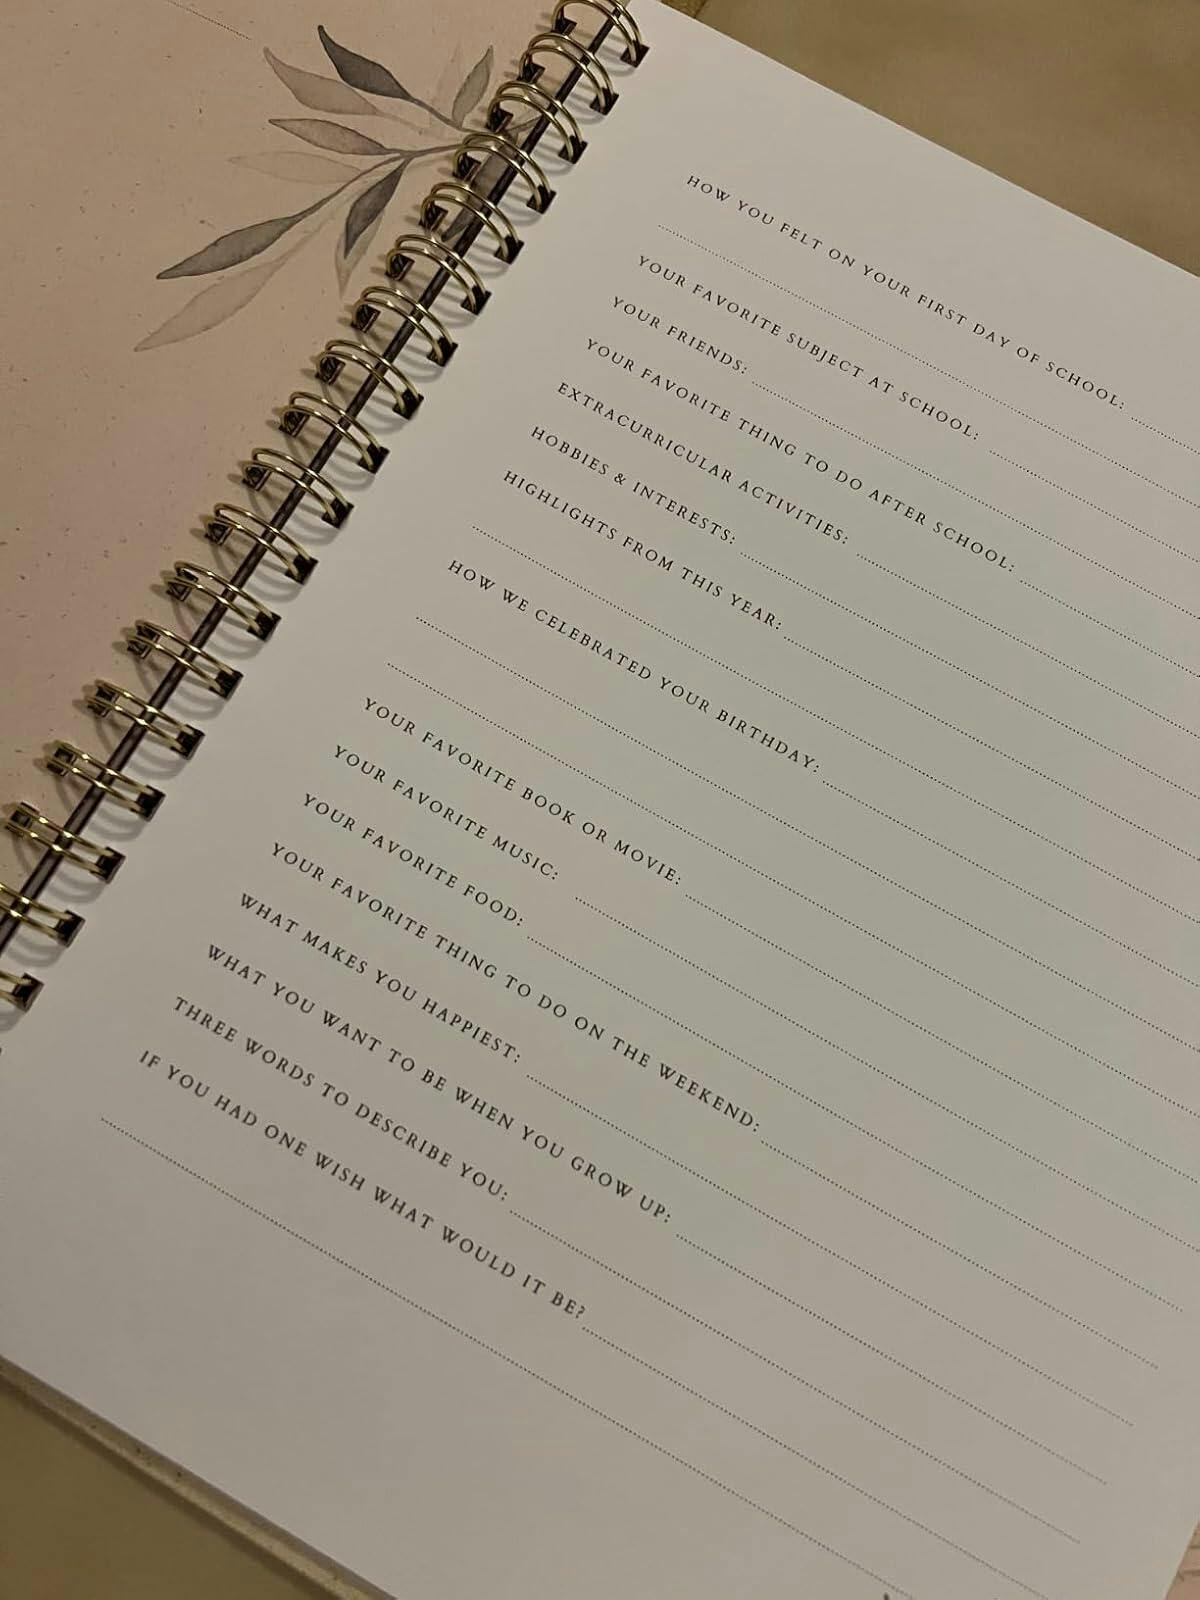 HOW YOU FELT ON YOUR FIRST DAY OF SCHOOL:
YOUR FAVORITE SUBJECT AT SCHOOL:
YOUR FRIENDS:
YOUR FAVORITE THING TO DO AFTER SCHOOL:
EXTRACURRICULAR ACTIVITIES:
HOBBIES & INTERESTS:
HIGHLIGHTS FROM THIS YEAR:
HOW WE CELEBRATED YOUR BIRTHDAY:
YOUR FAVORITE BOOK OR MOVIE:
YOUR FAVORITE MUSIC:
YOUR FAVORITE FOOD:
YOUR FAVORITE THING TO DO ON THE WEEKEND:
WHAT MAKES YOU HAPPIEST:
WHAT YOU WANT TO BE WHEN YOU GROW UP:
THREE WORDS TO DESCRIBE YOU:
IF YOU HAD ONE WISH WHAT WOULD IT BE?